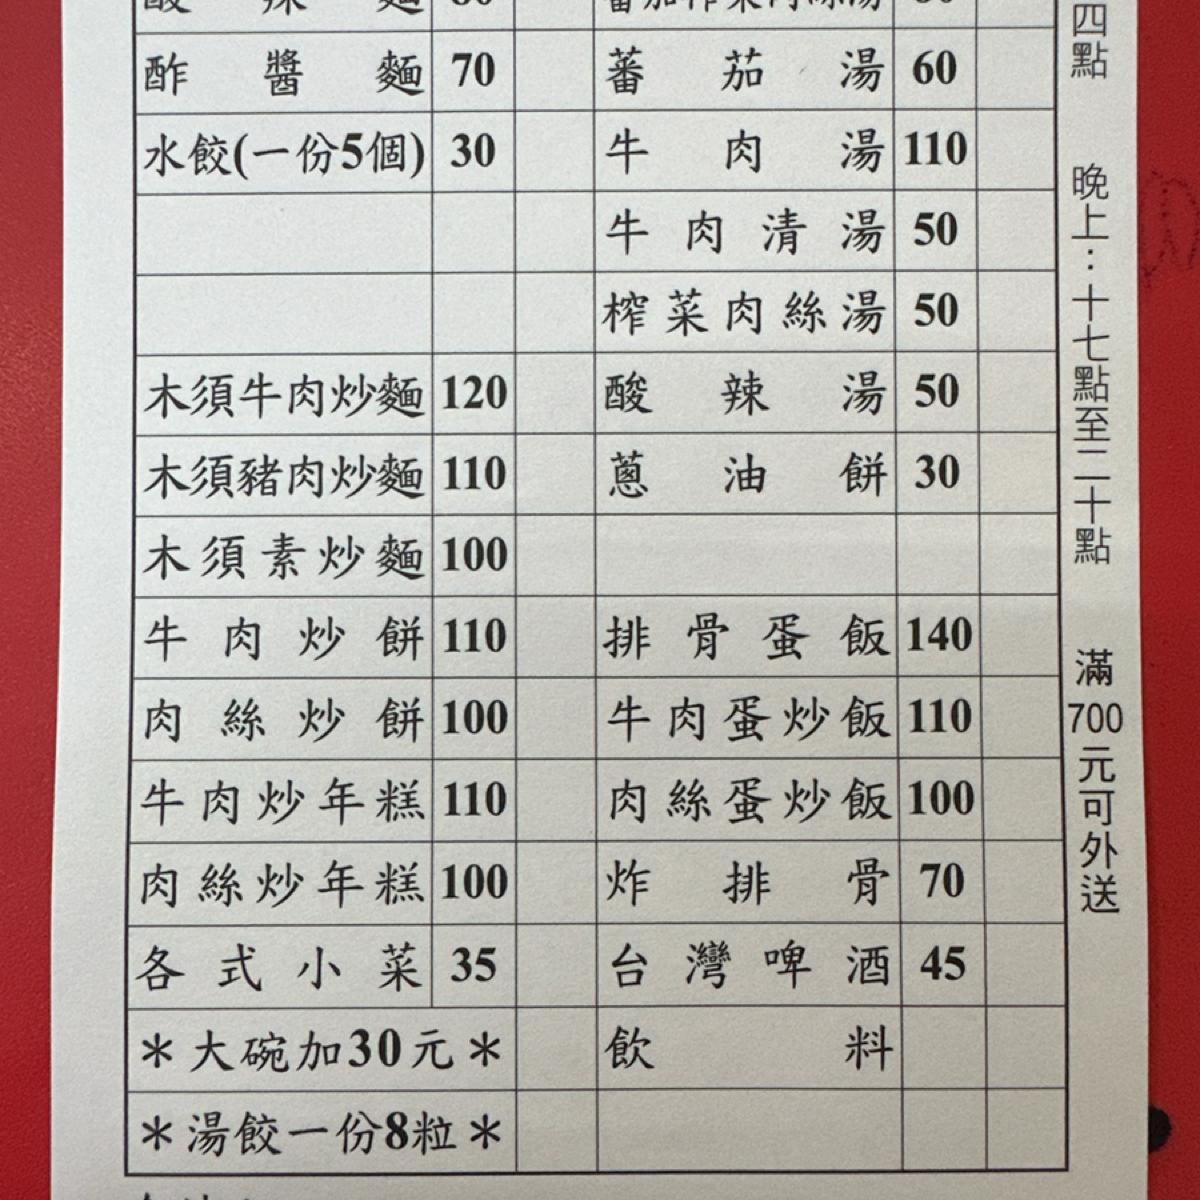 酸辣麵 80
酢醬麵 70
水餃(一份5個) 30
木須牛肉炒麵 120
木須豬肉炒麵 110
木須素炒麵 100
牛肉炒餅 110
肉絲炒餅 100
牛肉炒年糕 110
肉絲炒年糕 100
各式小菜 35
＊大碗加30元＊
＊湯餃一份8粒＊
蕃茄榨菜肉絲湯
蕃茄湯 60
牛肉湯 110
牛肉清湯 50
榨菜肉絲湯 50
酸辣湯 50
蔥油餅 30
排骨蛋飯 140
牛肉蛋炒飯 110
肉絲蛋炒飯 100
炸排骨 70
台灣啤酒 45
飲料
四點 晚上：十七點至二十點 滿700元可外送